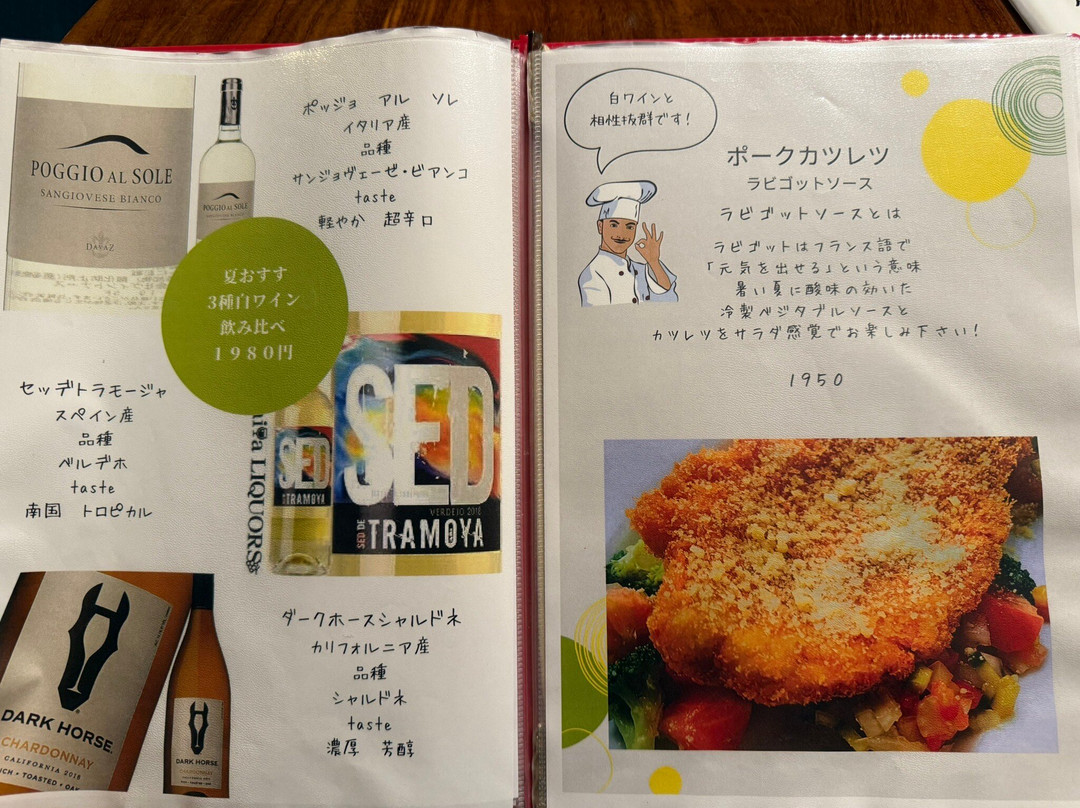 POGGIO AL SOLE
SANGIOVESE BIANCO
POGGIO AL SOLE
ポッジョ アル ソレ
イタリア産
品種
サンジョヴェーゼ・ビアンコ
taste
軽やか 超辛口
夏おすすめ
3種白ワイン
飲み比べ
1980円
セッデトラモージャ
スペイン産
品種
ベルデホ
taste
南国 トロピカル
LIQUORS
SED
TRAMOYA
SED
VERDEJO 2018
SED DE
TRAMOYA
DARK HORSE
CHARDONNAY
CALIFORNIA 2018
RICH • TOASTED • OAK
DARK HORSE
ダークホースシャルドネ
カリフォルニア産
品種
シャルドネ
taste
濃厚 芳醇
白ワインと
相性抜群です!
ポークカツレツ
ラビゴットソース
ラビゴットソースとは
ラビゴットはフランス語で
「元気を出せる」という意味
暑い夏に酸味の効いた
冷製ベジタブルソースと
カツレツをサラダ感覚でお楽しみ下さい!
1950